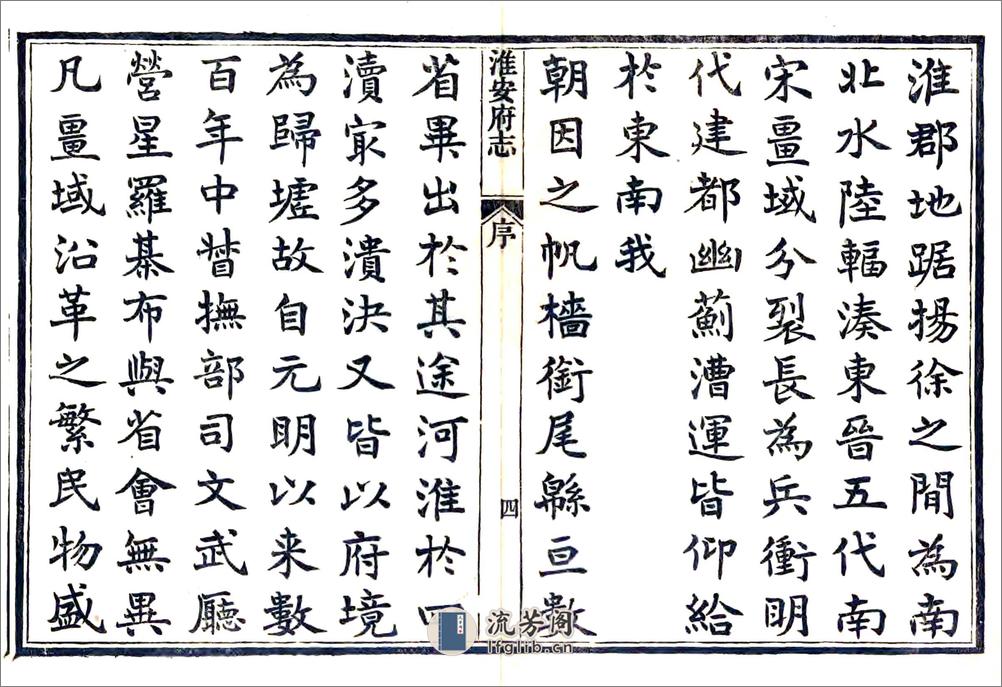 淮郡地踞揚徐之間為南
北水陸輻湊東晉五代南
宋畺域分裂長為兵衝明
代建都幽薊漕運皆仰給
於東南我
朝因之帆檣銜尾緜亘數
淮安府志
序
四
省畢出於其途河淮於四
瀆㝡多潰決又皆以府境
為歸墟故自元明以来數
百年中督撫部司文武廳
營星羅棊布與省會無異
凡畺域沿革之繁民物盛
流芳阁
lfglib.cn